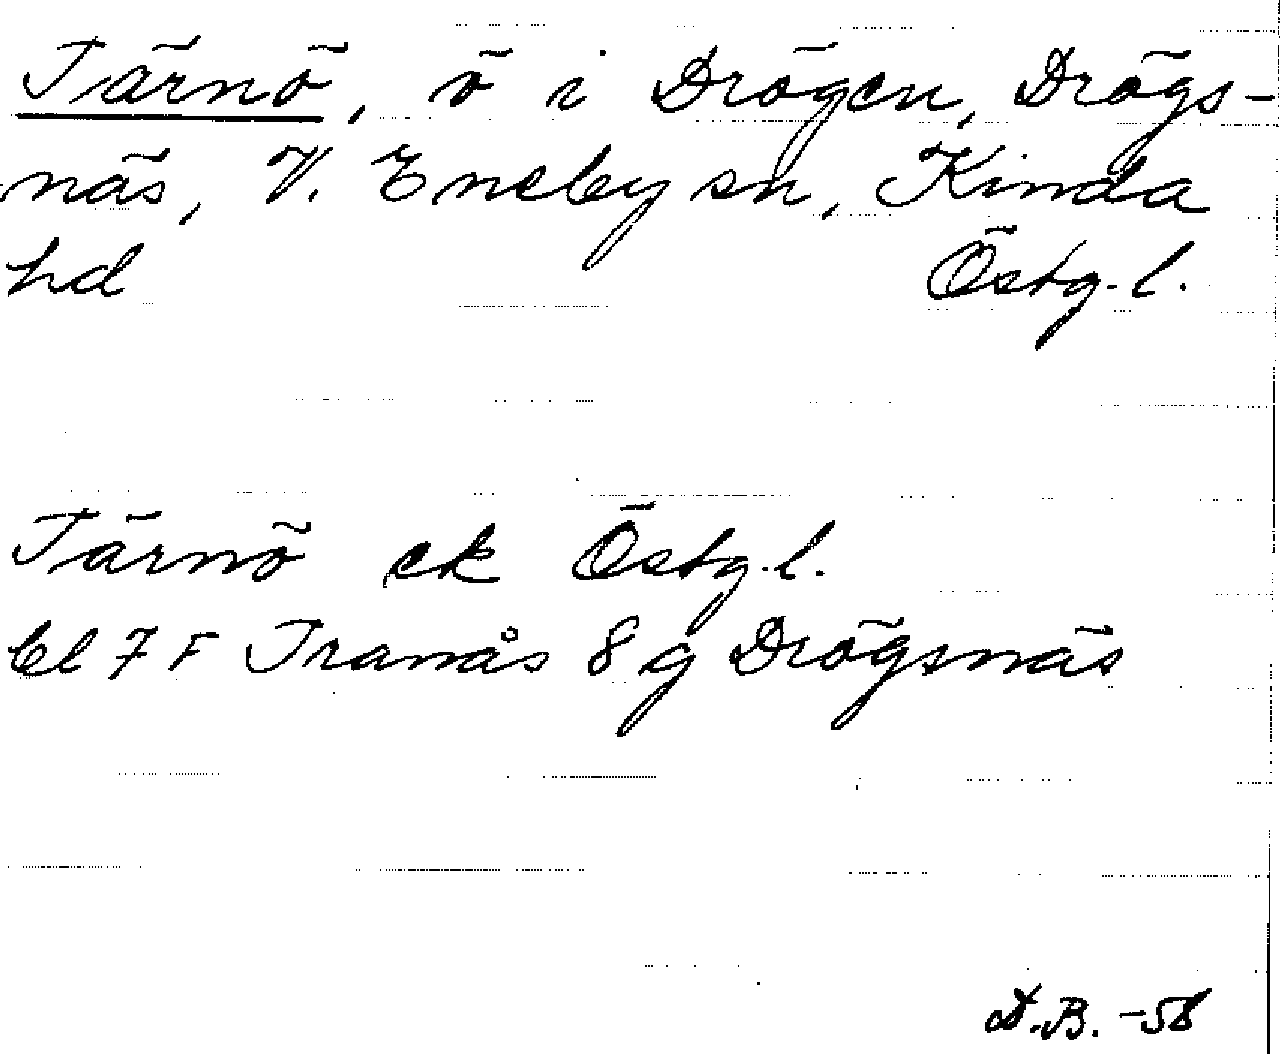 Tärnö, ö i Drögen, Drögs-
näs, V. Eneby sn, Kinda
hd Östg. l.
Tärnö ek Östg. l.
bl 7 F Tranås 8 g Drögsnäs
D.B. -56